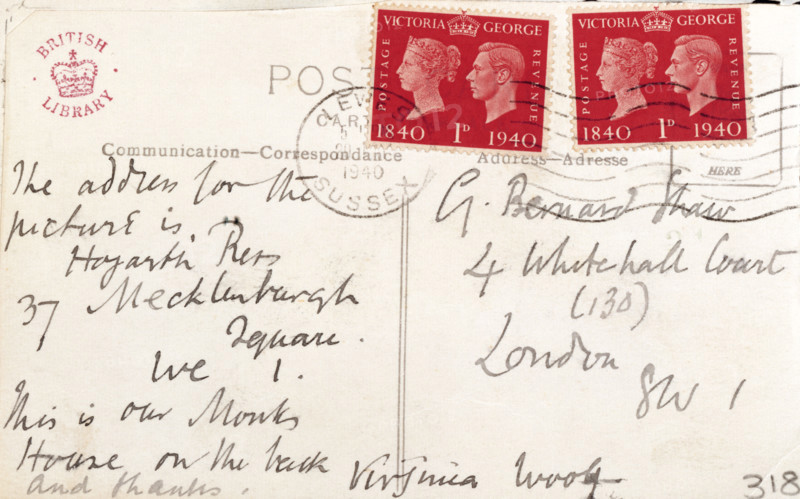 BRITISH
LIBRARY
POST
VICTORIA GEORGE
POSTAGE
REVENUE
1840 1D 1940
VICTORIA GEORGE
POSTAGE
REVENUE
1840 1D 1940
LEWES
1940
SUSSEX
Communication—Correspondance
Address—Adresse
HERE
The address for the
picture is
Hogarth Press
37 Mecklenburgh
Square.
WC 1.
This is our Monks
House on the back
and thanks.
Virginia Woolf
G. Bernard Shaw
4 Whitehall Court
(130)
London
SW 1
318